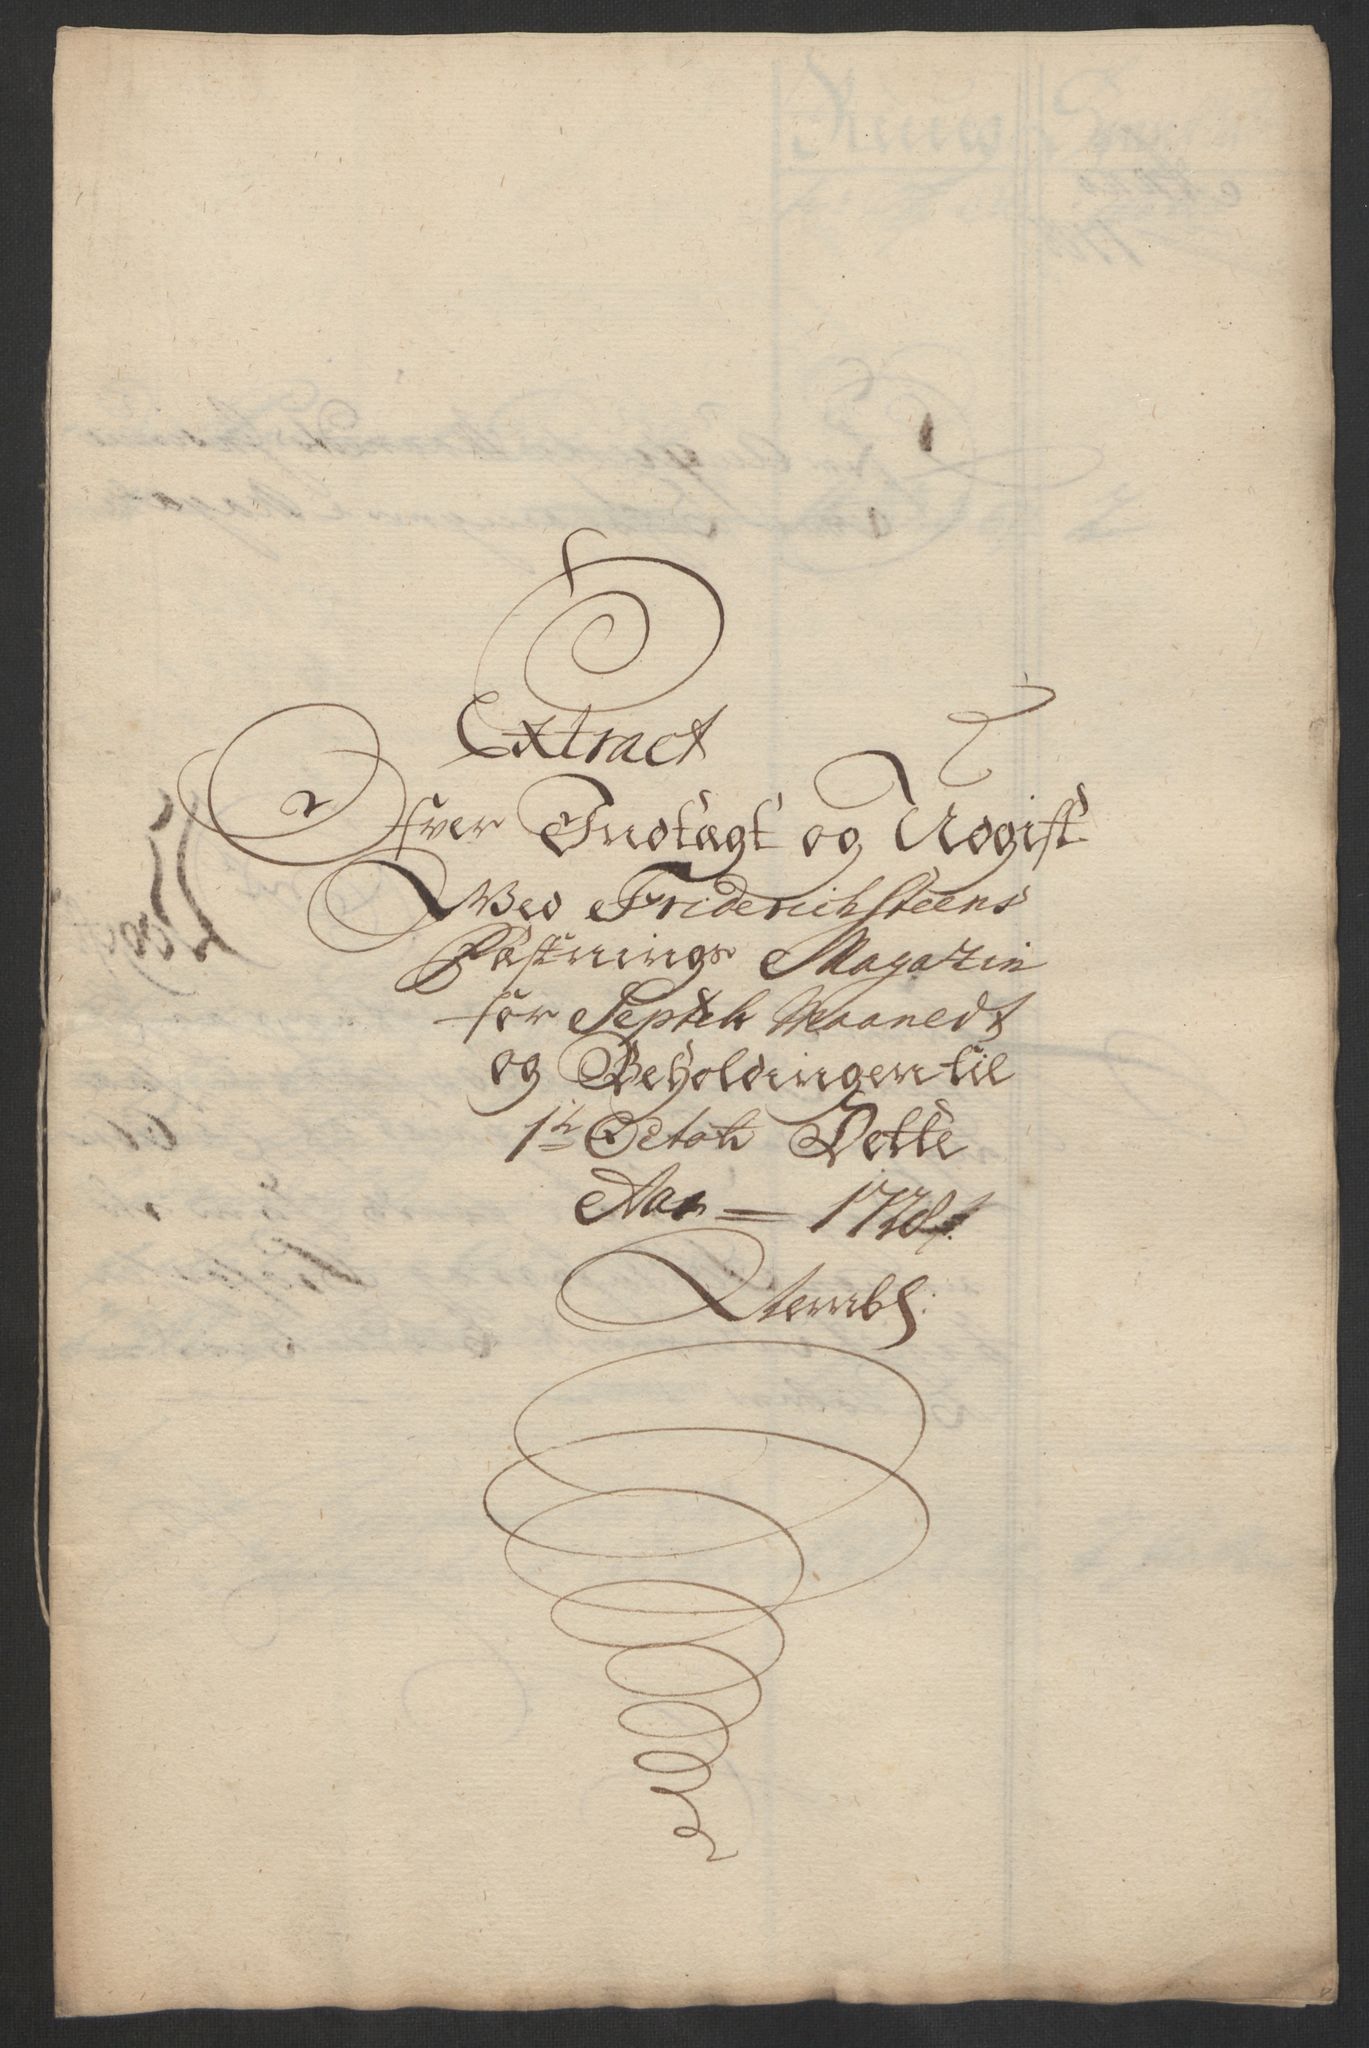 Extract
Ofver Indtægt og Udgift
Wed Friderichsteens
Fæstnings Magazin
for Septeb Maanedt
og Beholdingen til
1te Octob Dette
Aar = 1728